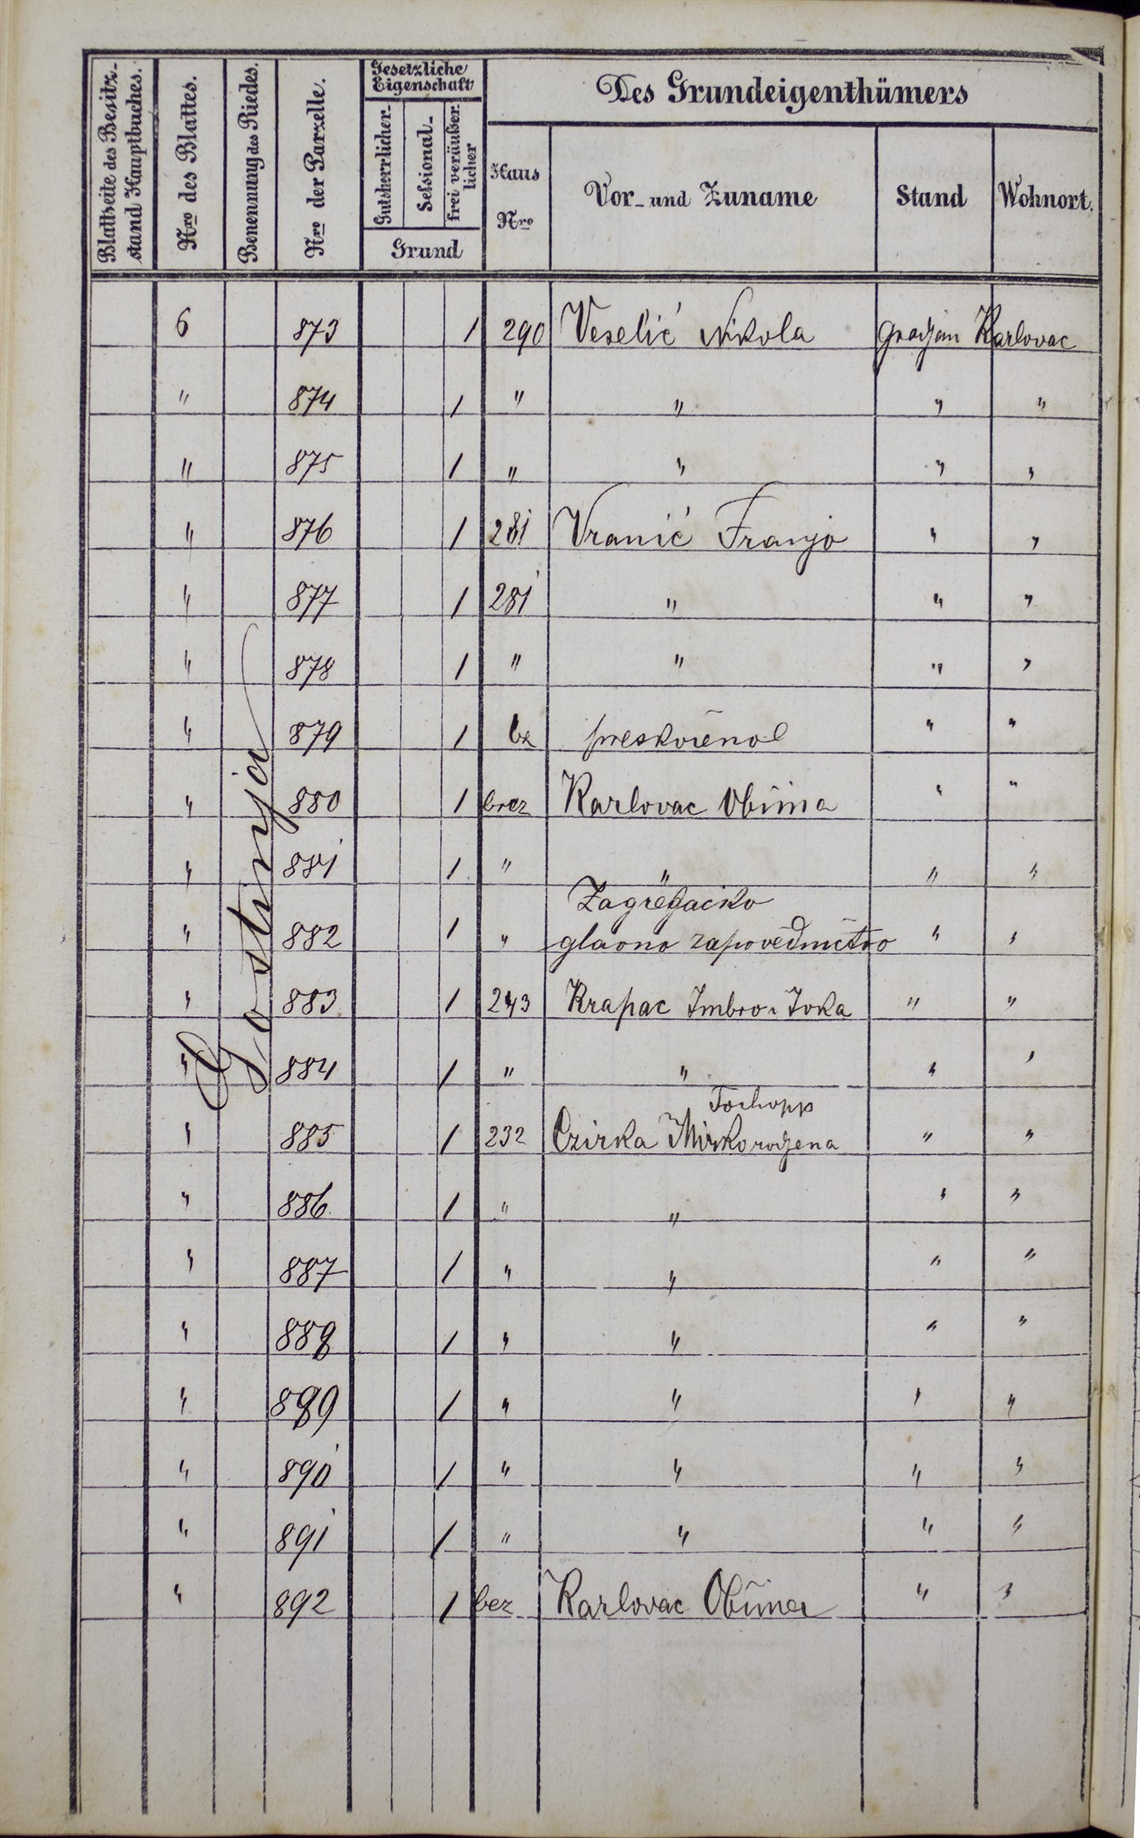 Blattseite des Besitz-
stand Hauptbuches.
Nro des Blattes.
Benennung des Riedes.
Nro der Parzelle.
Gesetzliche
Eigenschaft
Gutsherrlicher-
Sessional-
frei veräußer
licher
Grund
Des Grundeigenthümers
Haus
Nro
Vor- und Zuname
Stand
Wohnort.
Gostinja
6 873 1 290 Veselić Nikola gradjan Karlovac
" 874 1 " " " "
" 875 1 " " " "
" 876 1 281 Vranić Franjo " "
" 877 1 281 " " "
" 878 1 " " " "
" 879 1 bz preskočeno " "
" 880 1 brez Karlovac Obćina " "
" 881 1 " " " "
Zagrebačko
" 882 1 " glavno zapovedničtvo " "
" 883 1 243 Krapac Imbro i Joka " "
" 884 1 " " " "
" 885 1 232 Czirka Mirko rodjena " "
" 886 1 " " " "
" 887 1 " " " "
" 888 1 " " " "
" 889 1 " " " "
" 890 1 " " " "
" 891 1 " " " "
" 892 1 bez Karlovac Obćina " "